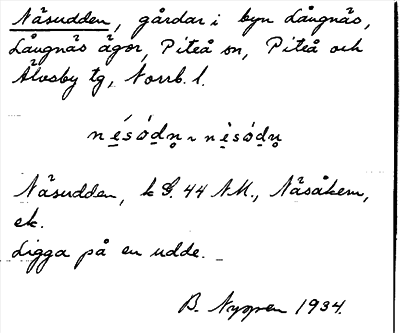 Näsudden, gårdar i byn Långnäs,
Långnäs ägor, Piteå sn, Piteå och
Älvsby tg, Norrb. l.
nésódn̥ ~ nèsódn̥
Näsudden, k G. 44 NM., Näsåkern,
ek.
Ligga på en udde.
B. Nygren 1934.